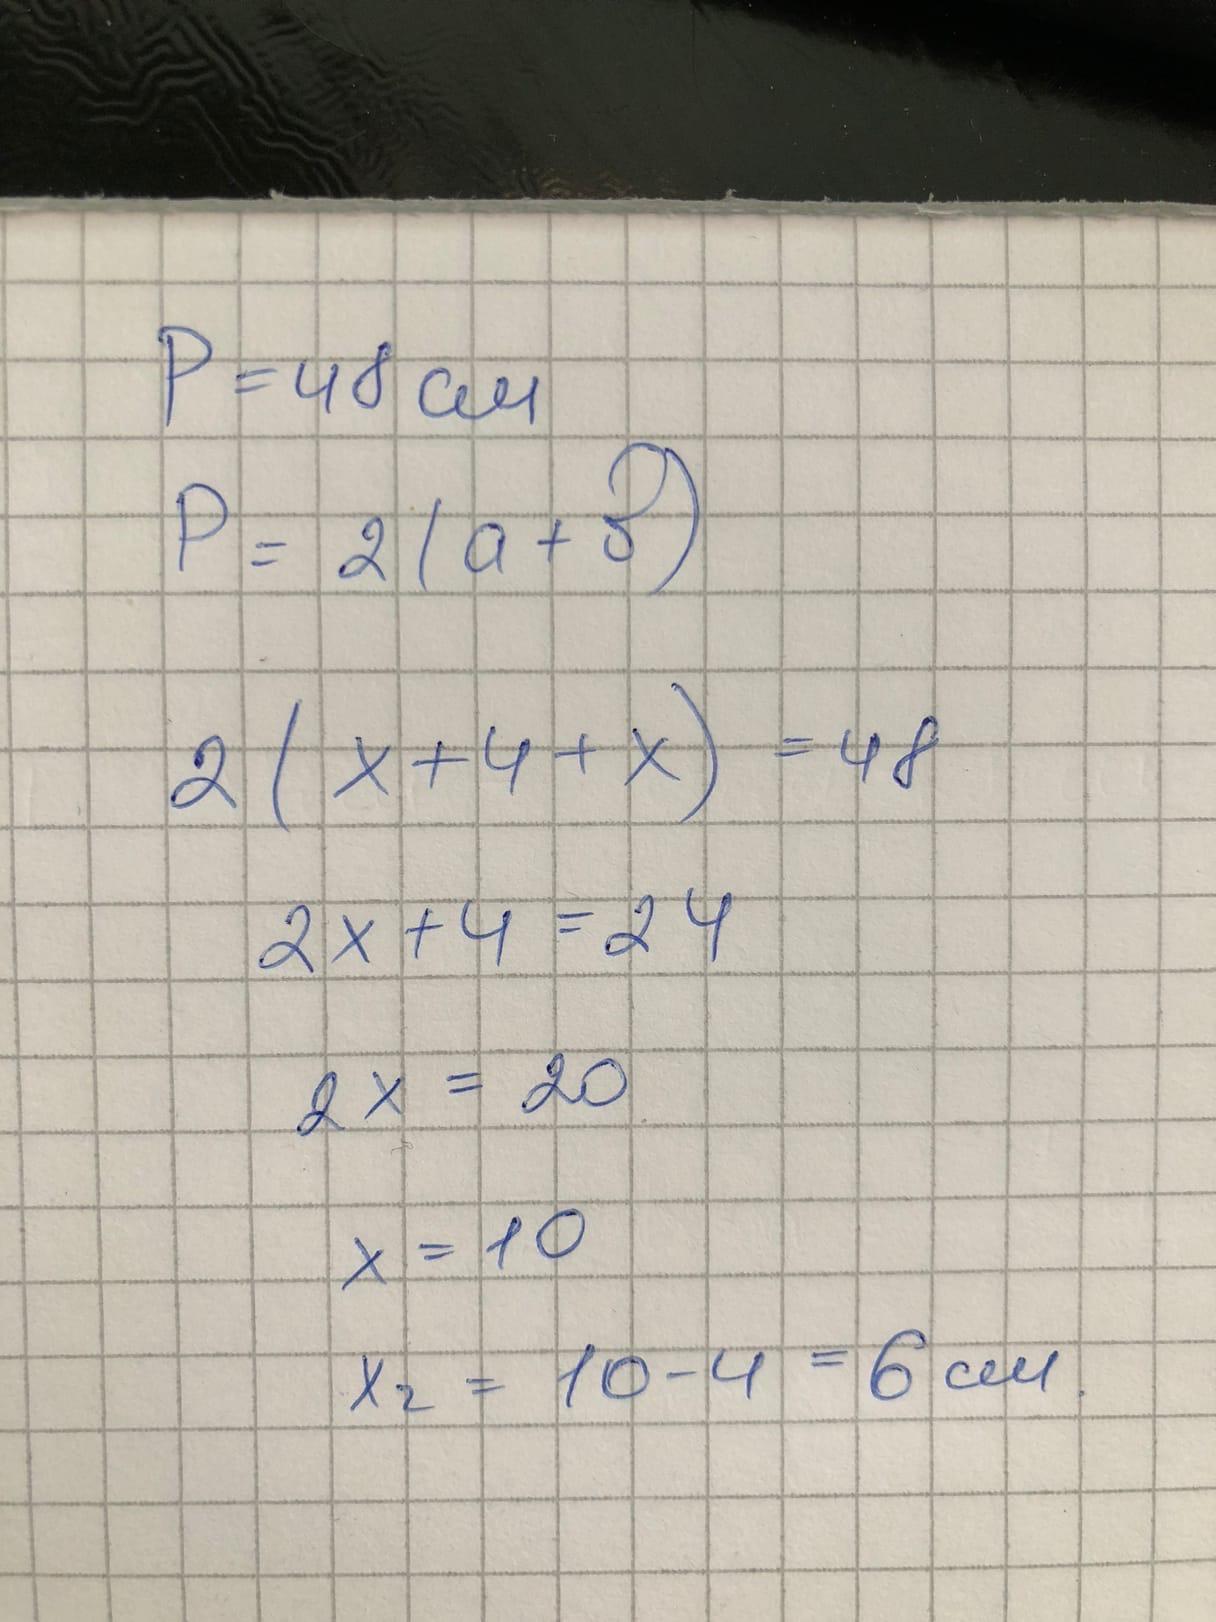 P = 48 см
P = 2(a + b)
2(x + 4 + x) = 48
2x + 4 = 24
2x = 20
x = 10
x₂ = 10 - 4 = 6 см.